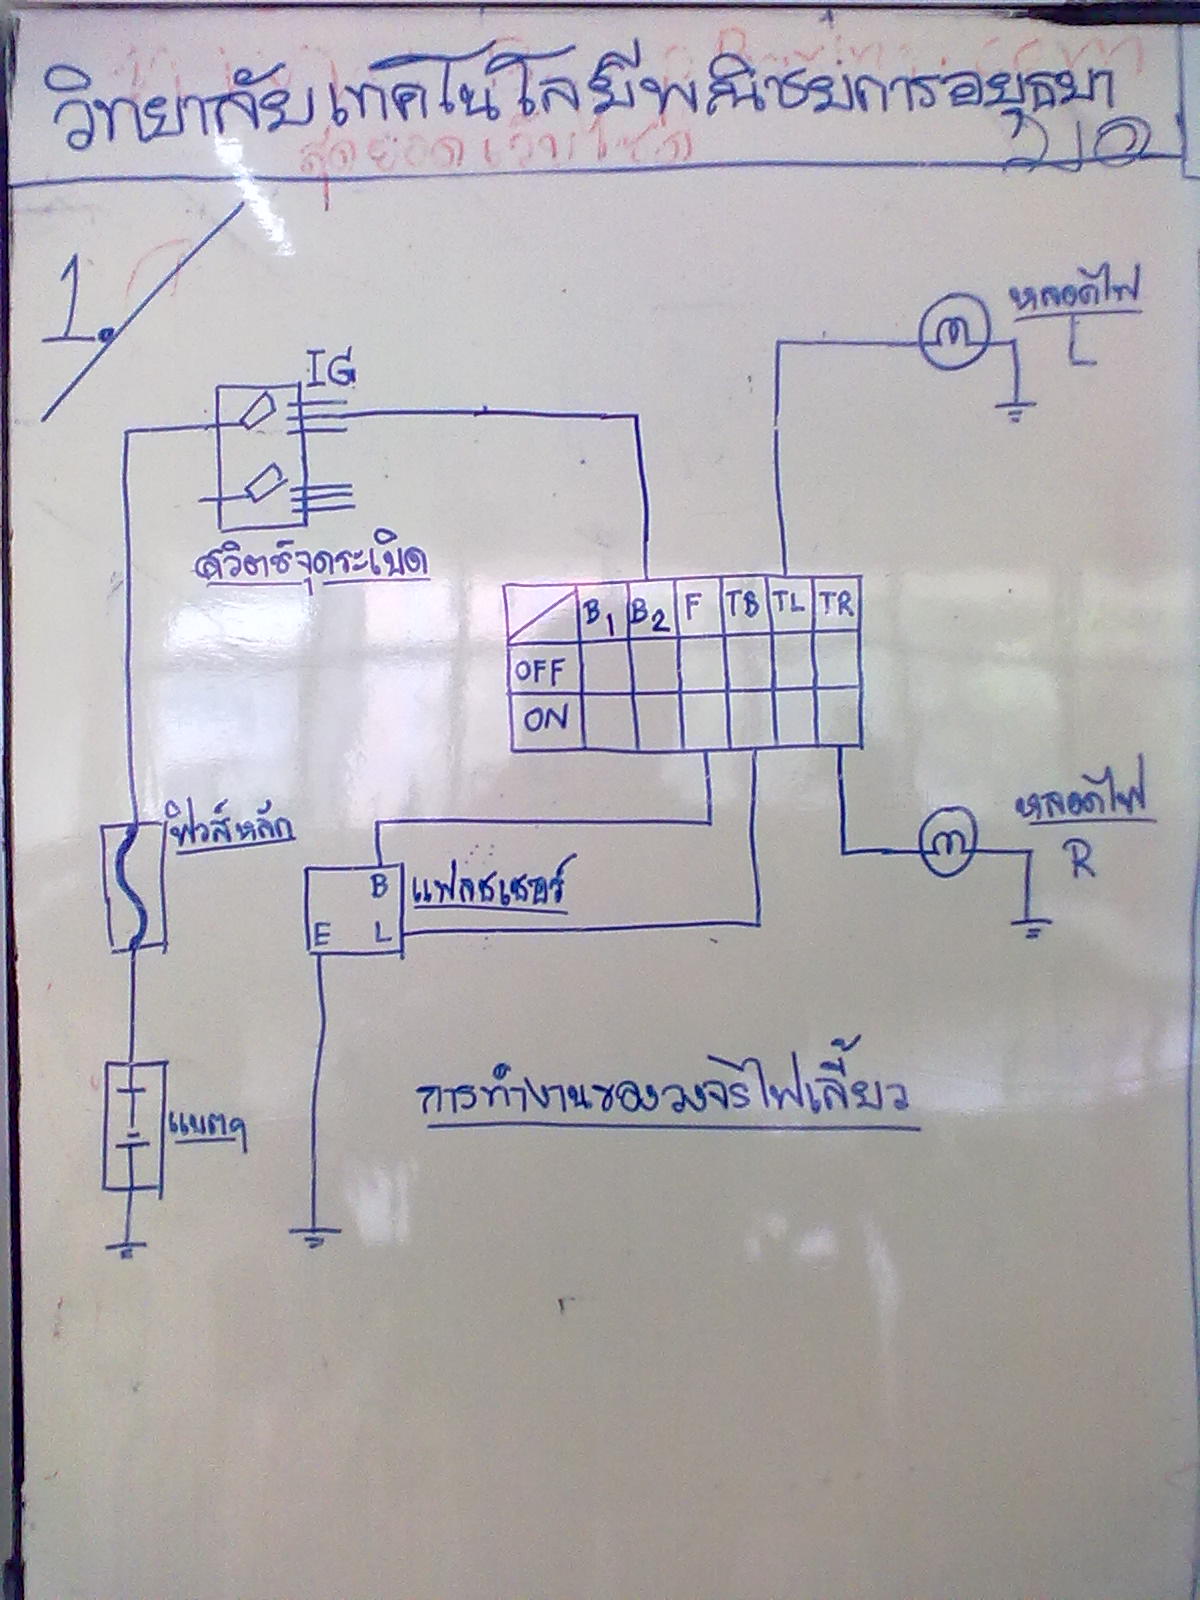 วิทยาลัยเทคโนโลยีพณิชยการอยุธยา
1.
IG
หลอดไฟ
L
สวิตช์จุดระเบิด
B1 B2 F TB TL TR
OFF
ON
ฟิวส์หลัก
หลอดไฟ
R
B
แฟลชเชอร์
E L
แบตฯ
การทำงานของวงจรไฟเลี้ยว